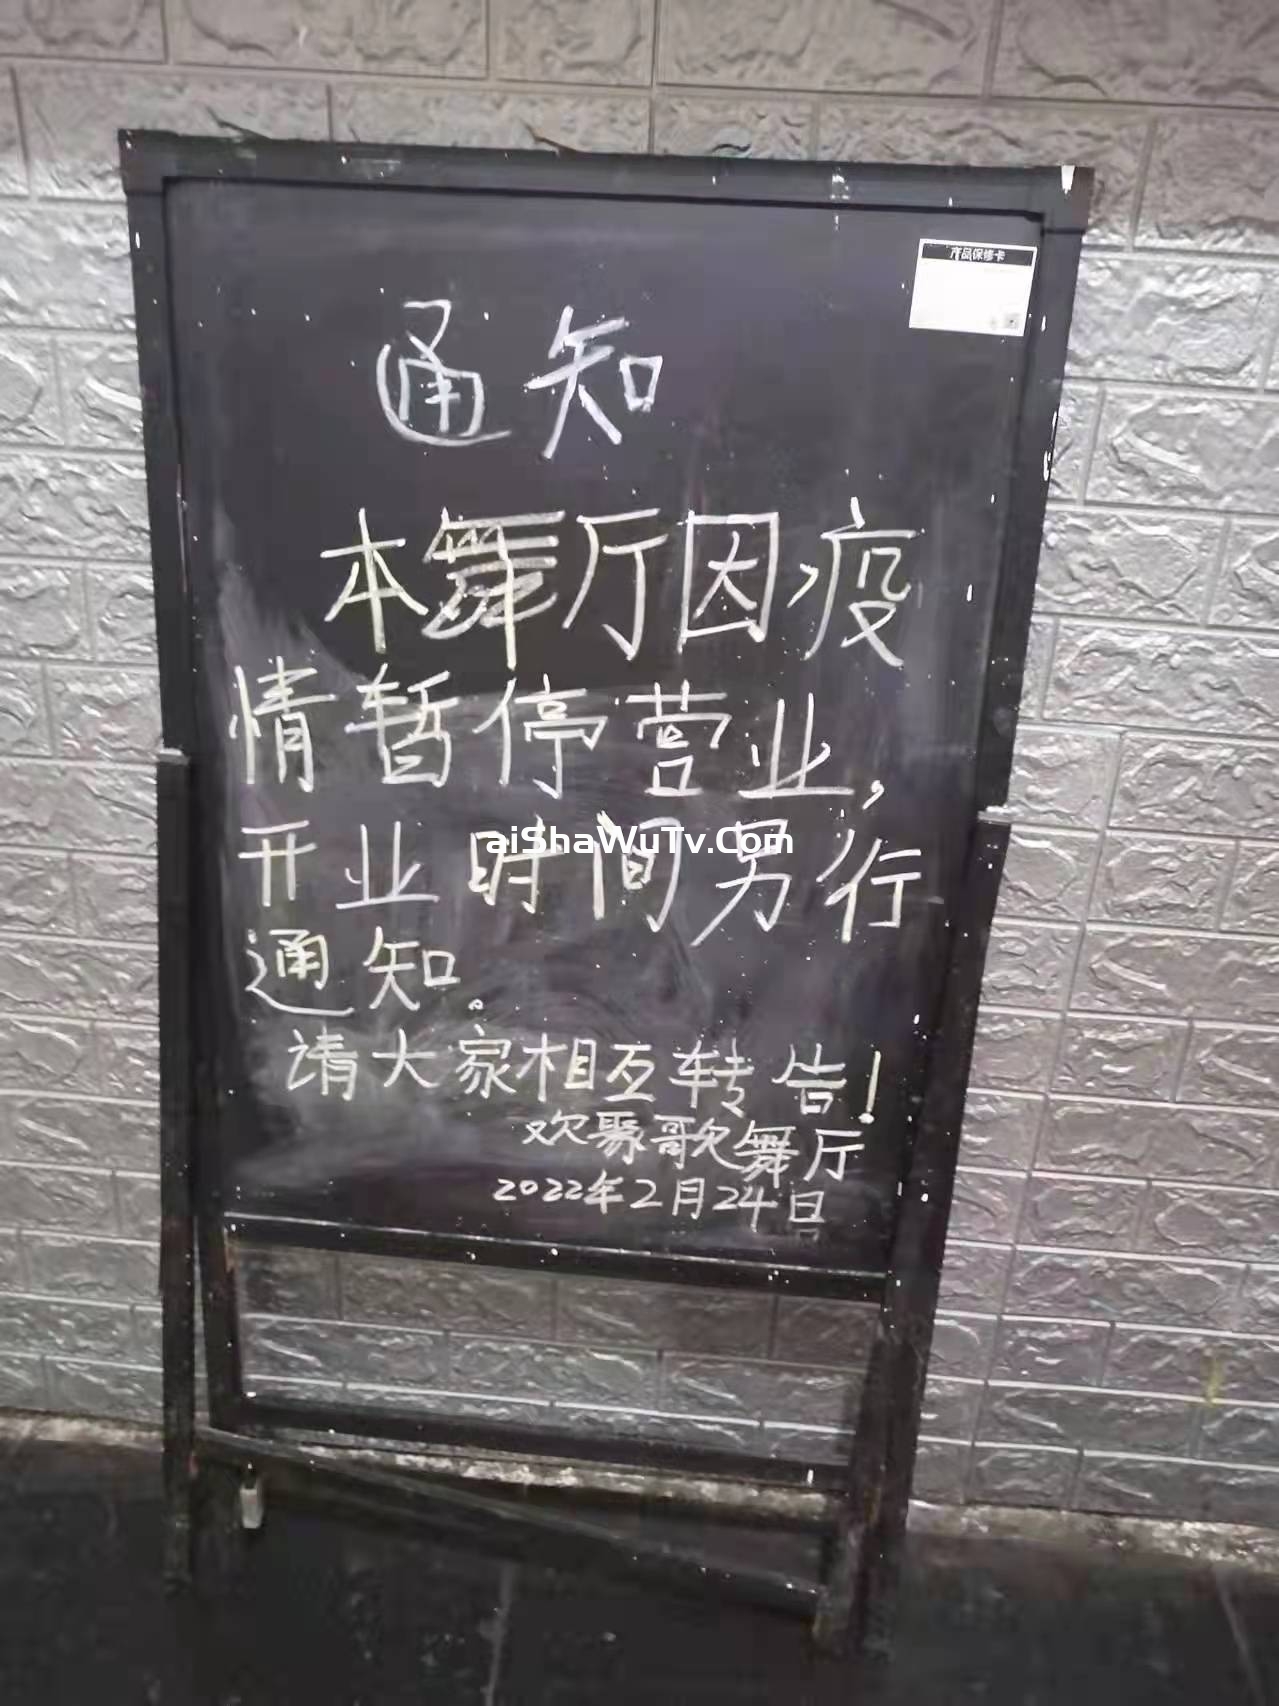 产品保修卡
通知
本舞厅因疫
情暂停营业，
aiShaWuTv.Com
开业时间另行
通知。
请大家相互转告！
欢聚歌舞厅
2022年2月24日